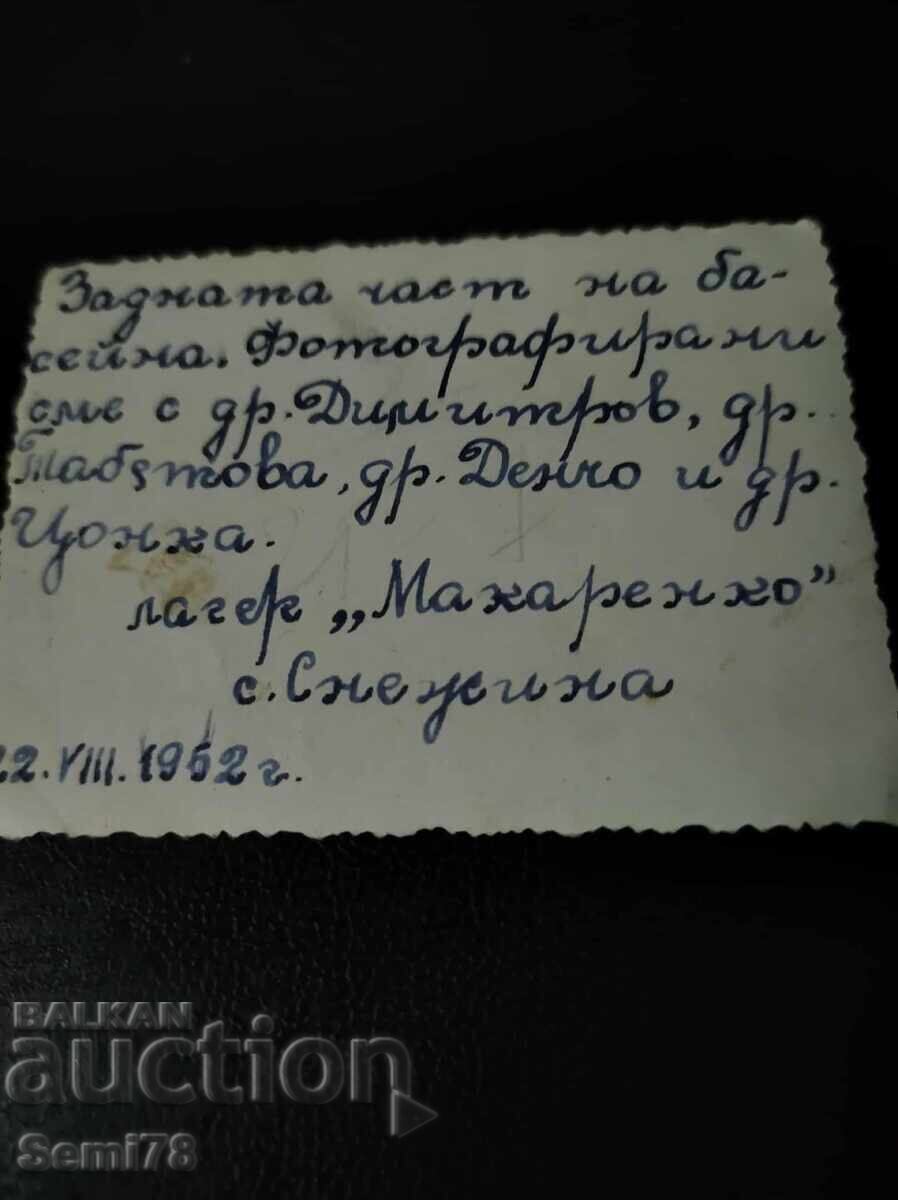 Задната част на ба-
сейна. Фотографирани
сме с др. Димитров, др.
Табутова, др. Денчо и др.
Цонка.
лагер „Макаренко"
с. Снежина
22.VIII.1952 г.
BALKAN
auction
Semi78